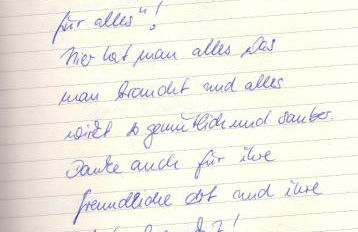 für alles"!
Hier hat man alles was
man braucht und alles
wirkt so gemütlich und sauber.
Danke auch für ihre
freundliche Art und ihre